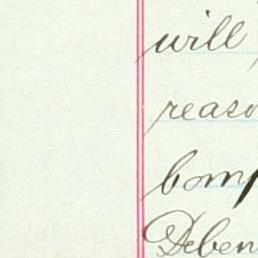 will
reaso
Comp
Deben